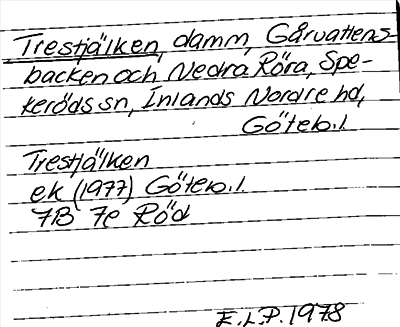 Trestjälken, damm, Gårvattens-
backen och Nedra Röra, Spe-
keröds sn, Inlands Nordre hd,
Göteb. l.
Trestjälken
ek (1977) Göteb. l.
7B 7e Röd
E.L.P. 1978